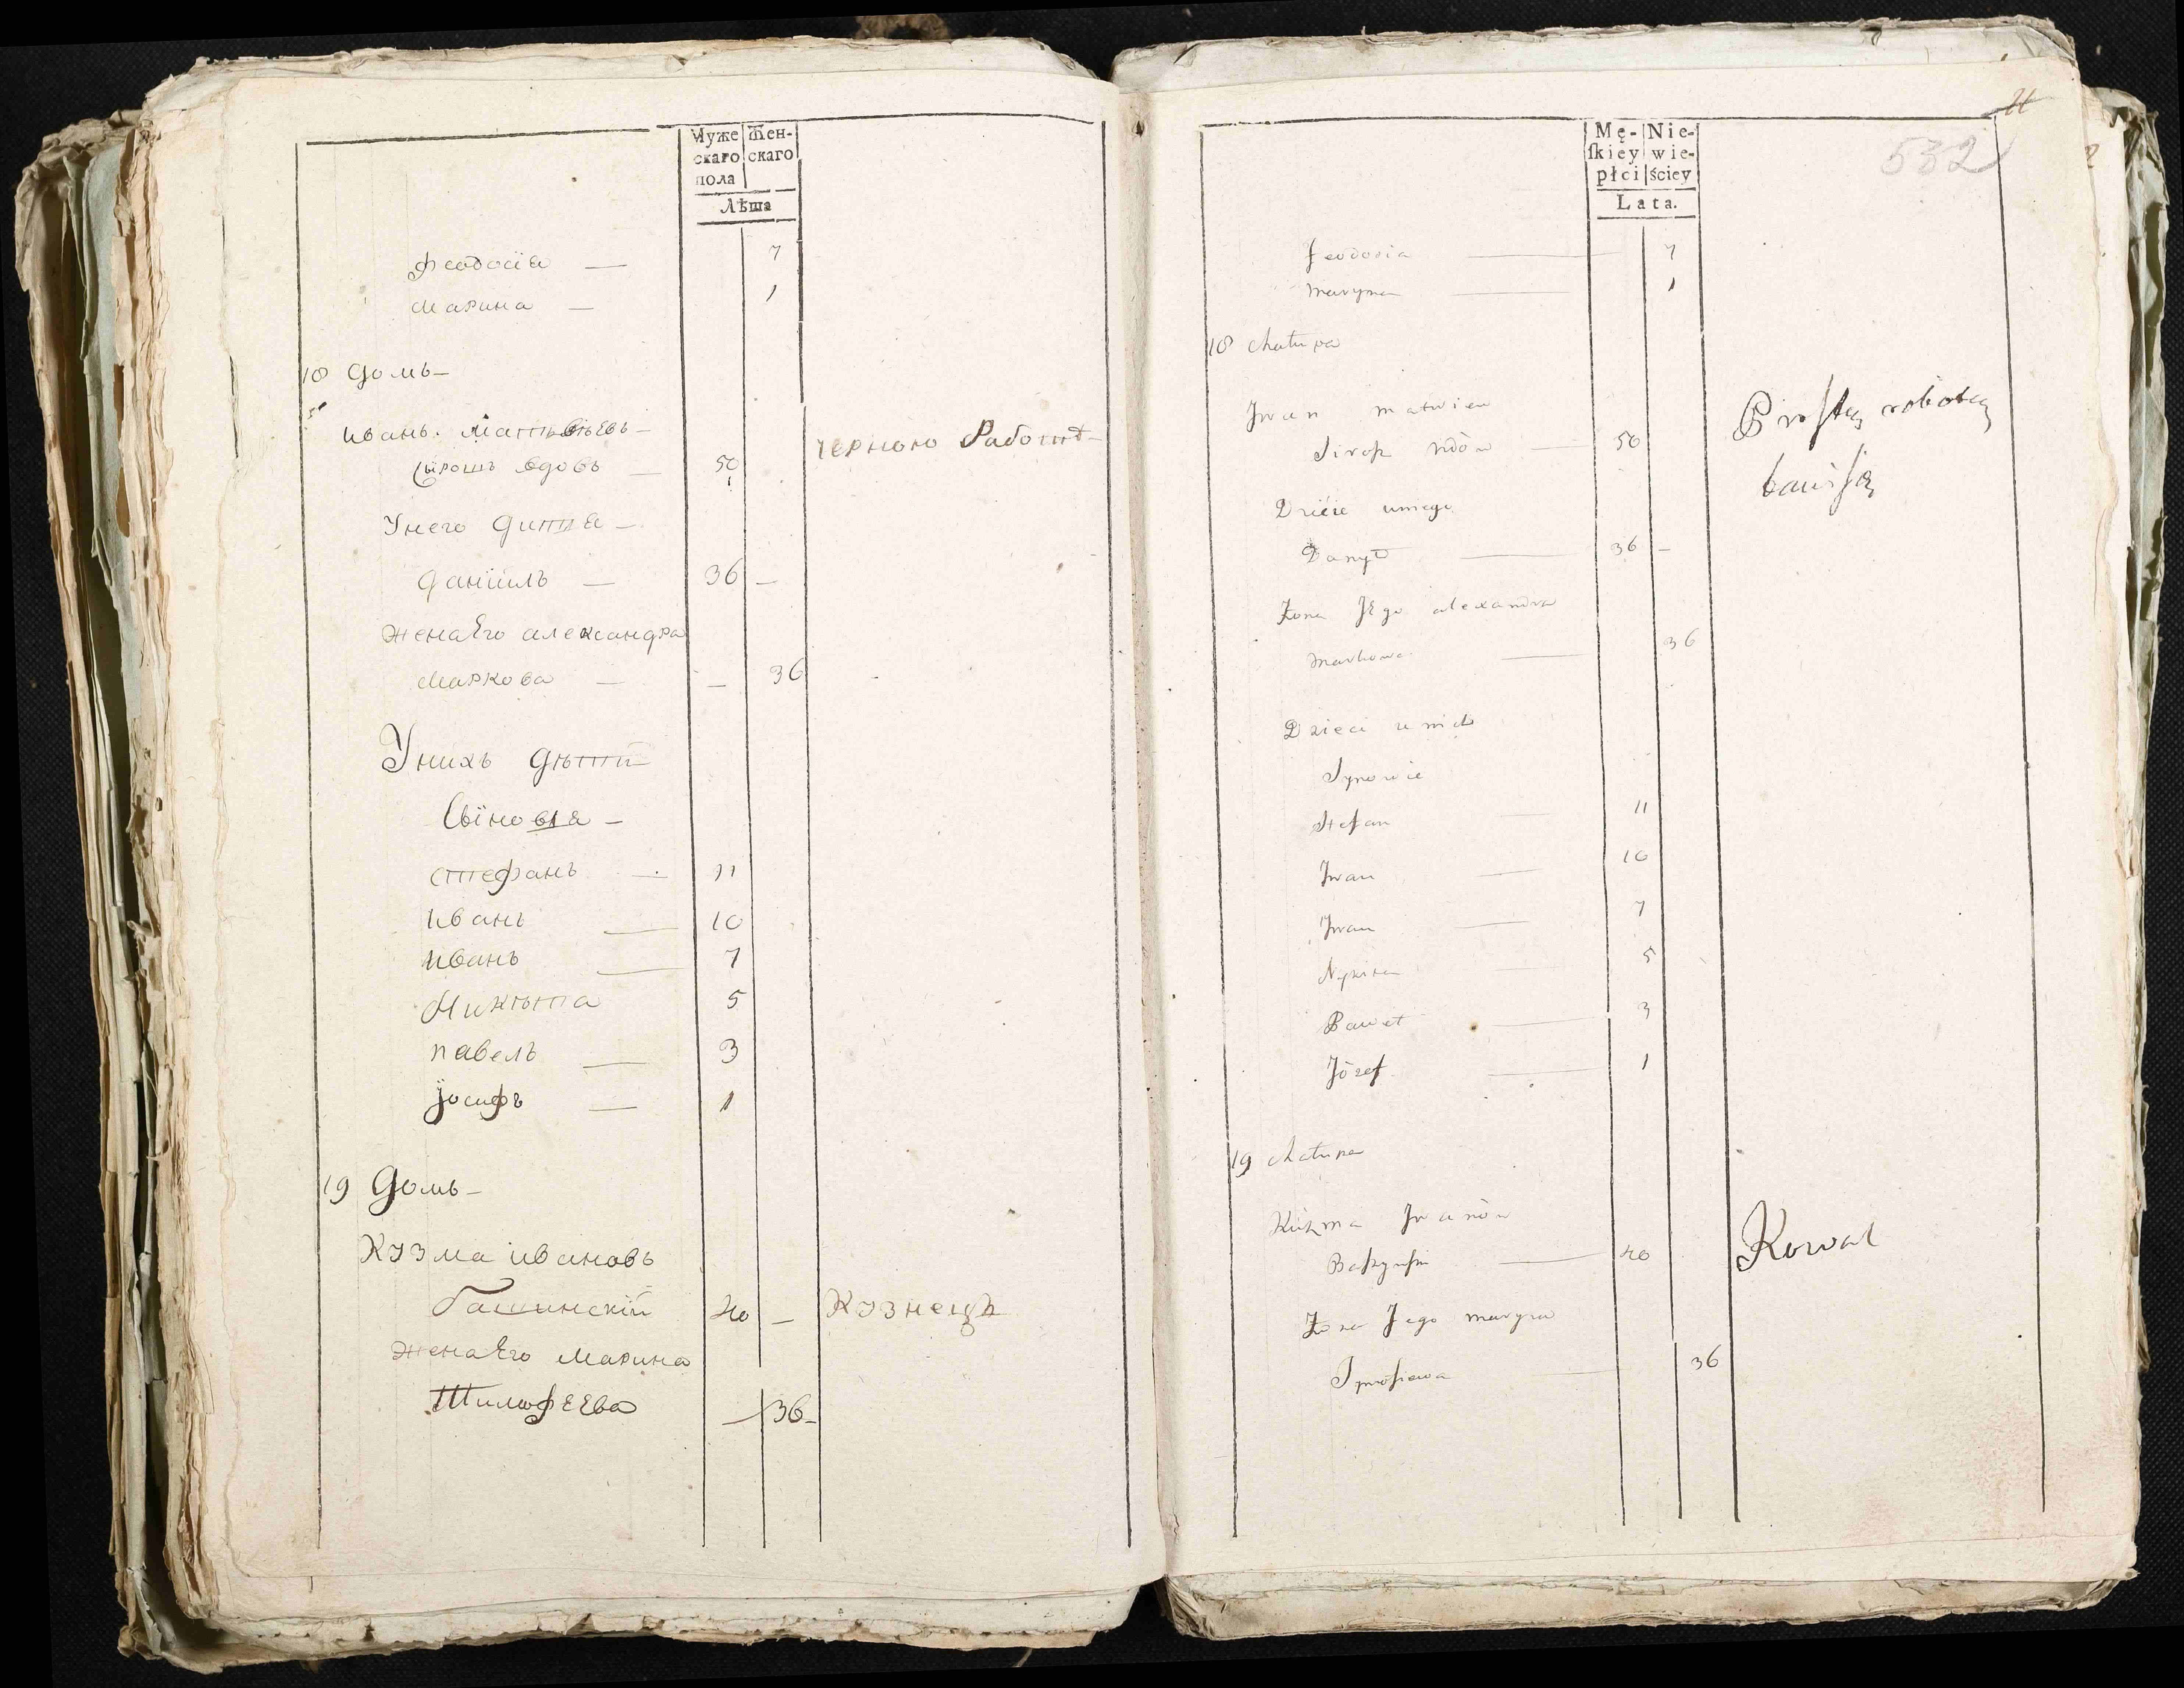 Муже скаго пола
Жен- скаго
Лѣта
Феодосïя — 7
Марина — 1
18 Домъ —
Иванъ Матвѣевъ —
Сырошъ вдовъ — 50 черною Работ
Унего дитя —
Данïилъ — 36 —
Жена Его александра
Маркова — — 36
Унихъ дѣти
Сынов —
Стефанъ — 11
Иванъ — 10
Иванъ — 7
Никита 5
Павелъ — 3
Иосифъ — 1
19 Домъ —
Кузма Ивановъ
Башинскïй 40 — Кузнецъ
Жена Его Марина
Тимофеева — 36 —
Mę- ſkiey płci
Nie- wie- ściey
Lata.
532
Feodosia — 7
Maryna — 1
18 Chałupa
Iwan Matwiew
Sirosz wdów — 50 Prostą robotą
bawi się
Dziecie uniego
Danył — 36 —
Żona Jego alexandra
Markowa — 36
Dzieci u nich
Synowie
Stefan — 11
Iwan — 10
Iwan — 7
Nykita — 5
Paweł — 3
Józef — 1
19 Chałupa
Kuzma Iwanów
— 40 Kowal
Żona Jego maryna
— 36